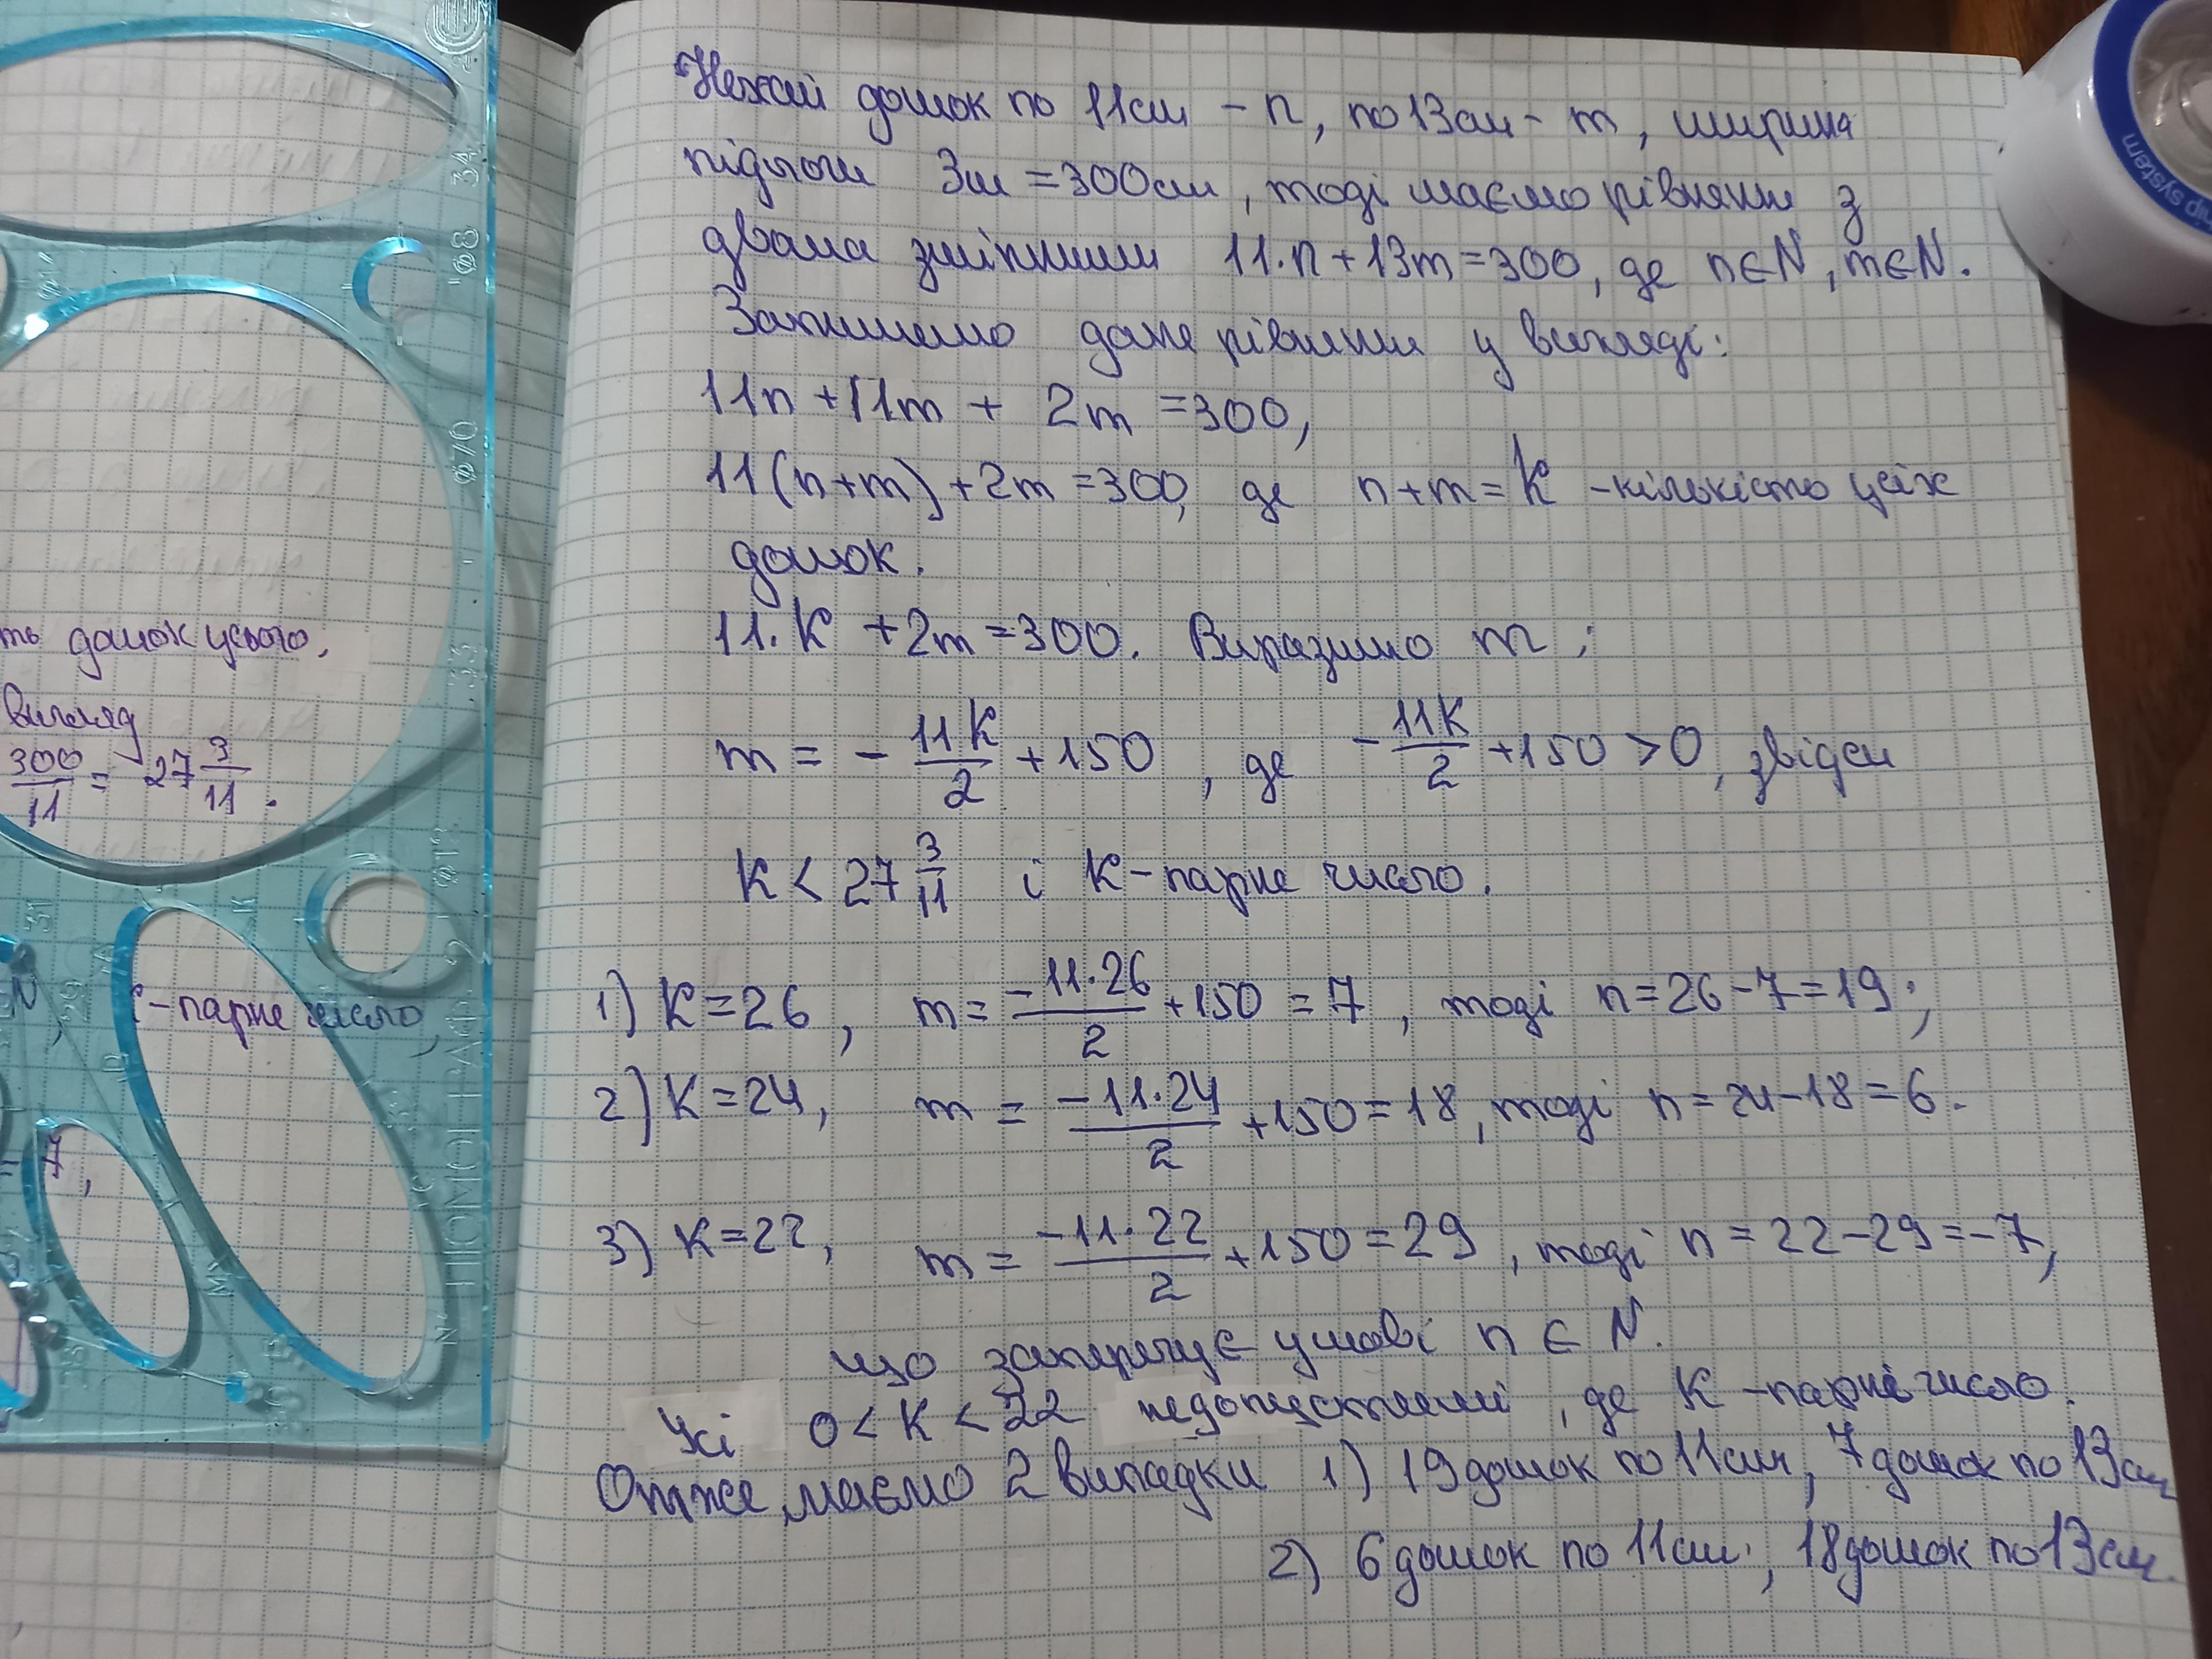 ть дошок усього,
вигляд
300/11 = 27 3/11.
к-парне число,
= 7,
Нехай дошок по 11см – n, по 13см – m, ширина
підлоги 3м = 300см, тоді маємо рівняння з
двома змінними 11·n + 13m = 300, де n∈N, m∈N.
Запишемо дане рівняння у вигляді:
11n + 11m + 2m = 300,
11(n+m) + 2m = 300, де n+m = K – кількість усіх
дошок.
11·K + 2m = 300. Виразимо m:
m = - 11K/2 + 150, де - 11K/2 + 150 > 0, звідси
K < 27 3/11 і K – парне число.
1) K = 26, m = -11·26/2 + 150 = 7, тоді n = 26 - 7 = 19;
2) K = 24, m = -11·24/2 + 150 = 18, тоді n = 24 - 18 = 6.
3) K = 22, m = -11·22/2 + 150 = 29, тоді n = 22 - 29 = -7,
що заперечує умові n ∈ N.
Усі 0 < K < 22 недопустимі, де K – парне число.
Отже, маємо 2 випадки 1) 19 дошок по 11см, 7 дошок по 13см
2) 6 дошок по 11см, 18 дошок по 13см.